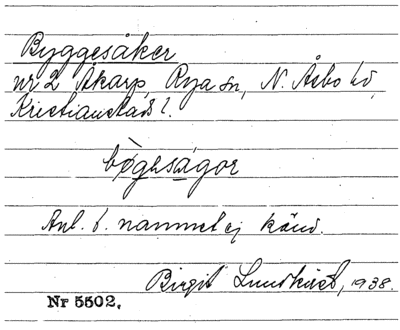 Byggesåker
nr 2 Åkarp, Rya sn, N. Åsbo hd,
Kristianstads l.
bògesågor
Anl. t. namnet ej känd.
Birgit Lundkvist, 1938.
Nr 5502.